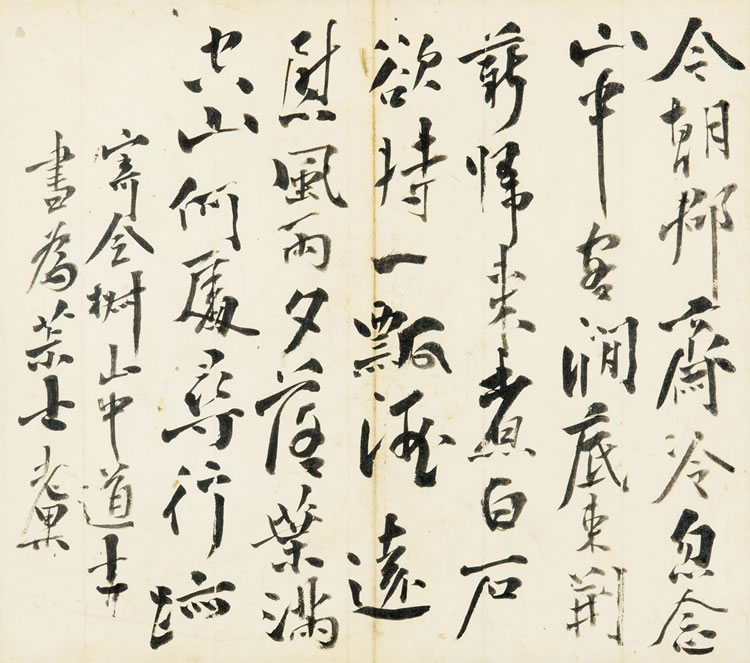 今朝郡齋冷忽念
山中客澗底束荊
薪歸來煮白石
欲持一瓢酒遠
慰風雨夕落葉滿
空山何處尋行跡
寄全椒山中道士
書為士